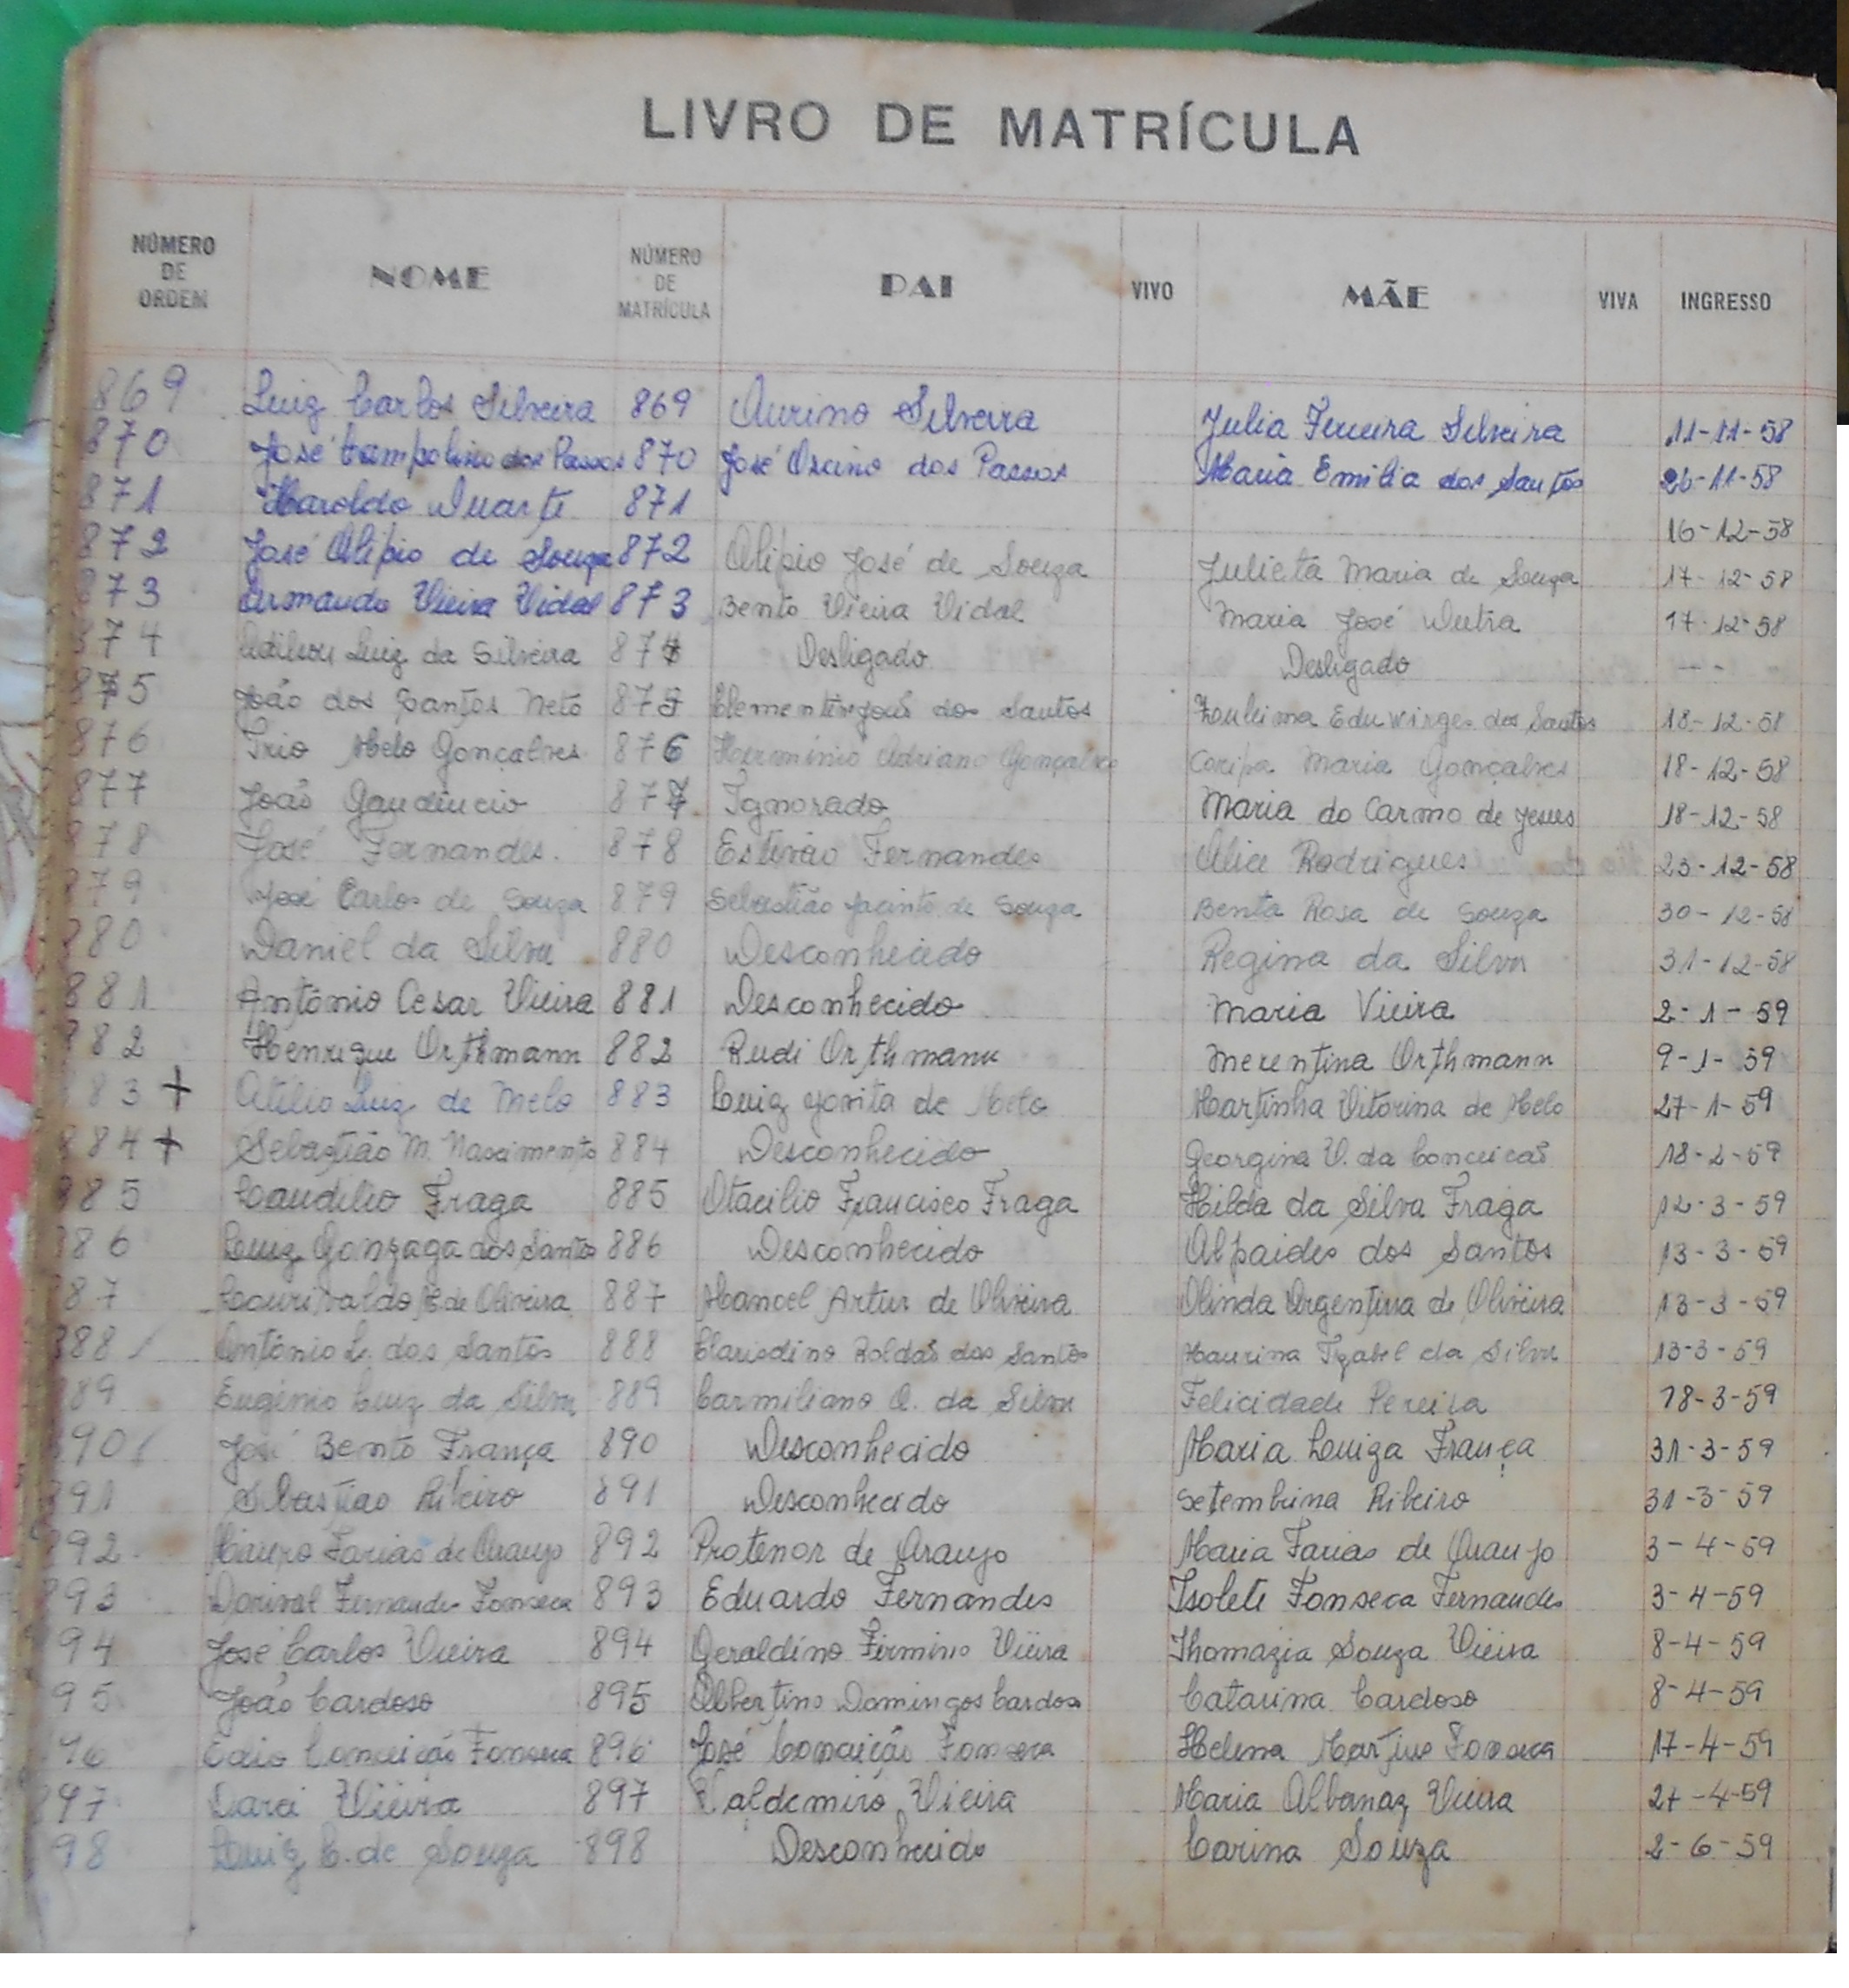 LIVRO DE MATRÍCULA
NÚMERO DE ORDEM NOME NÚMERO DE MATRÍCULA PAI VIVO MÃE VIVA INGRESSO
869 Luiz Carlos Silveira 869 Aurino Silveira Julia Ferreira Silveira 11-11-58
870 José dos Passos 870 José dos Passos Maria Emilia dos Santos 26-11-58
871 Haroldo Duarte 871 16-12-58
872 José Alípio de Souza 872 Alípio José de Souza Julieta Maria de Souza 17-12-58
873 Armando Vieira Vidal 873 Bento Vieira Vidal Maria José Dutra 17-12-58
874 Adilson Luiz da Silveira 874 Desligado Desligado - -
875 João dos Santos Neto 875 dos Santos Eduwirges dos Santos 18-12-58
876 Melo Gonçalves 876 Hermínio Adriano Gonçalves Maria Gonçalves 18-12-58
877 João Gaudêncio 877 Ignorado Maria do Carmo de Jesus 18-12-58
878 José Fernandes. 878 Estevão Fernandes Alice Rodrigues 23-12-58
879 José Carlos de Souza 879 Sebastião Jacinto de Souza Benta Rosa de Souza 30-12-58
880 Daniel da Silva 880 Desconhecido Regina da Silva 31-12-58
881 Antônio Cesar Vieira 881 Desconhecido Maria Vieira 2-1-59
882 Henrique Orthmann 882 Rudi Orthmann Merentina Orthmann 9-1-59
883 + Atílio Luiz de Melo 883 Luiz de Melo Martinha Vitorina de Melo 27-1-59
884 + Sebastião M. Nascimento 884 Desconhecido Georgina V. da Conceicão 18-2-59
885 Laudelio Fraga 885 Otacilio Francisco Fraga Hilda da Silva Fraga 12-3-59
886 Luiz Gonzaga dos Santos 886 Desconhecido Alpaides dos Santos 13-3-59
887 Lourivaldo de Oliveira 887 Manoel Artur de Oliveira Olinda Argentina de Oliveira 13-3-59
888 Antônio L. dos Santos 888 Clarisdino Roldão dos Santos Maurina Izabel da Silva 13-3-59
889 Eugênio Luiz da Silva 889 Carmiliano O. da Silva Felicidade Pereira 18-3-59
890 José Bento França 890 Desconhecido Maria Luiza França 31-3-59
891 Sebastião Ribeiro 891 Desconhecido Setembrina Ribeiro 31-3-59
892 Mauro Farias de Araujo 892 Protenor de Araujo Maria Farias de Araujo 3-4-59
893 Dorival Fernandes Fonseca 893 Eduardo Fernandes Isolete Fonseca Fernandes 3-4-59
94 José Carlos Vieira 894 Geraldino Firmino Vieira Thomazia Souza Vieira 8-4-59
95 João Cardoso 895 Albertino Domingos Cardoso Catarina Cardoso 8-4-59
96 Conceição Fonseca 896 José Conceição Fonseca Helena Martins Fonseca 17-4-59
897 Darci Vieira 897 Valdemiro Vieira Maria Albanaz Vieira 27-4-59
98 Luiz C. de Souza 898 Desconhecido Carina Souza 2-6-59